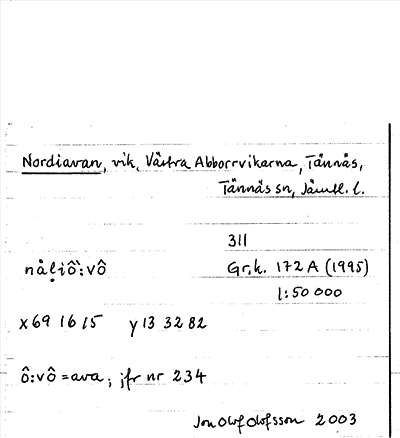 Nordiavan, vik, Västra Abborrvikarna, Tännäs,
Tännäs sn, Jämtl. l.
311
nå̀ḷiồ:vô Gr.k. 172 A (1995)
1:50 000
x 69 16 15 y 13 32 82
ô:vô = ava; jfr nr 234
Jon Olof Olofsson 2003